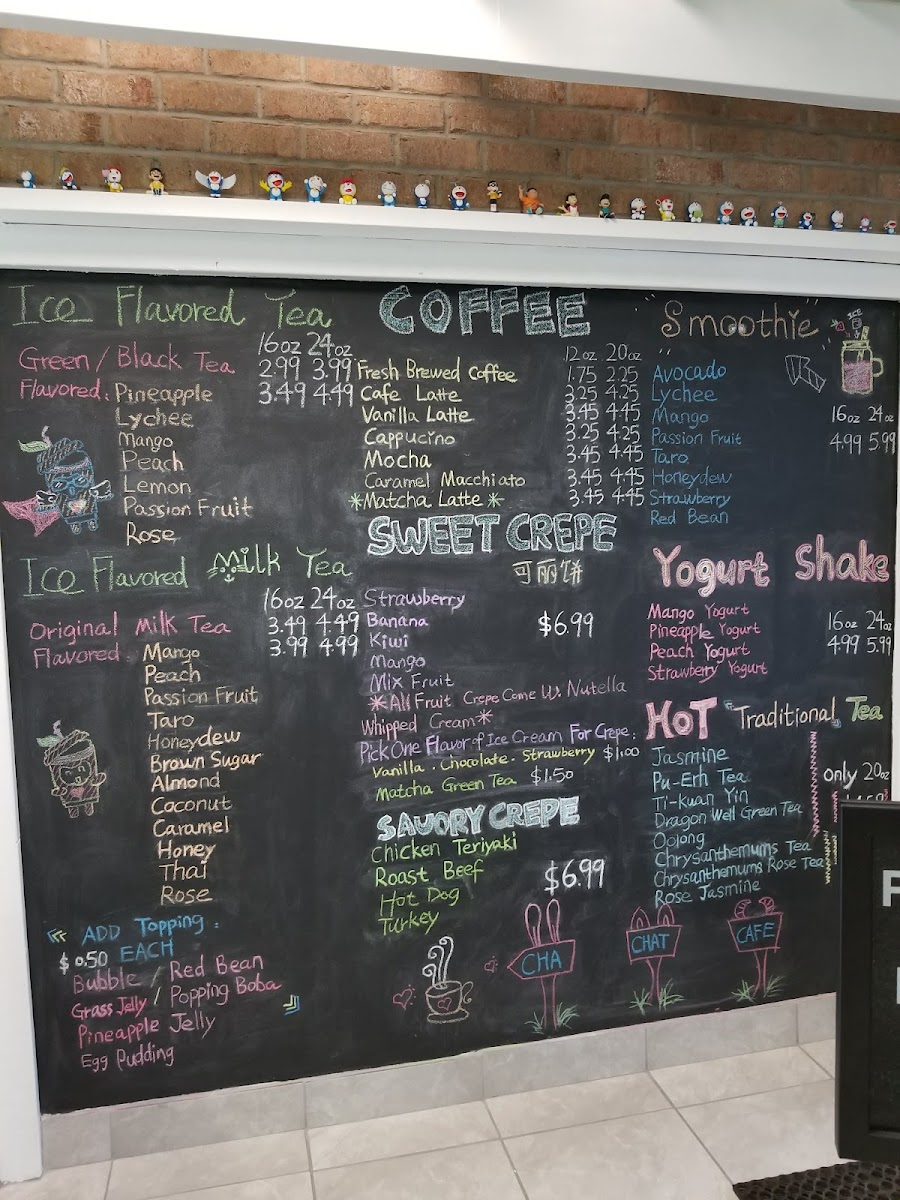 Ice Flavored Tea
16oz 24oz
Green / Black Tea 2.99 3.99
Flavored: 3.49 4.49
Pineapple
Lychee
Mango
Peach
Lemon
Passion Fruit
Rose
Ice Flavored Milk Tea
16oz 24oz
Original Milk Tea 3.49 4.49
Flavored 3.99 4.99
Mango
Peach
Passion Fruit
Taro
Honeydew
Brown Sugar
Almond
Coconut
Caramel
Honey
Thai
Rose
ADD Topping :
$0.50 EACH
Bubble / Red Bean
Grass Jelly / Popping Boba
Pineapple Jelly
Egg Pudding
COFFEE
12oz 20oz
Fresh Brewed Coffee 1.75 2.25
Cafe Latte 3.25 4.25
Vanilla Latte 3.45 4.45
Cappucino 3.25 4.25
Mocha 3.45 4.45
Caramel Macchiato 3.45 4.45
*Matcha Latte * 3.45 4.45
SWEET CREPE
可丽饼
Strawberry
Banana $6.99
Kiwi
Mango
Mix Fruit
*All Fruit Crepe Come W/ Nutella
Whipped Cream*
Pick One Flavor of Ice Cream For Crepe:
Vanilla . Chocolate . Strawberry $1.00
Matcha Green Tea $1.50
SAVORY CREPE
Chicken Teriyaki
Roast Beef $6.99
Hot Dog
Turkey
CHA
CHAT
CAFE
Smoothie
ICE
Avocado
Lychee
Mango 16oz 24oz
Passion Fruit 4.99 5.99
Taro
Honeydew
Strawberry
Red Bean
Yogurt Shake
Mango Yogurt
Pineapple Yogurt 16oz 24oz
Peach Yogurt 4.99 5.99
Strawberry Yogurt
HOT "Traditional" Tea
Jasmine
Pu-Erh Tea only 20oz
Ti-Kuan Yin
Dragon Well Green Tea
Oolong
Chrysanthemums Tea
Chrysanthemums Rose Tea
Rose Jasmine